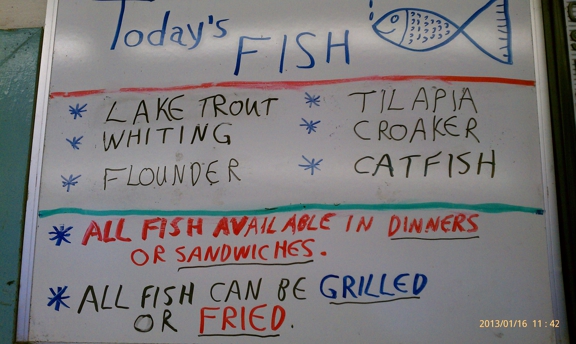 Today's FISH
* LAKE TROUT
* WHITING
* FLOUNDER
* TILAPIA
* CROAKER
* CATFISH
* ALL FISH AVAILABLE IN DINNERS
OR SANDWICHES.
* ALL FISH CAN BE GRILLED
OR FRIED.
2013/01/16 11:42